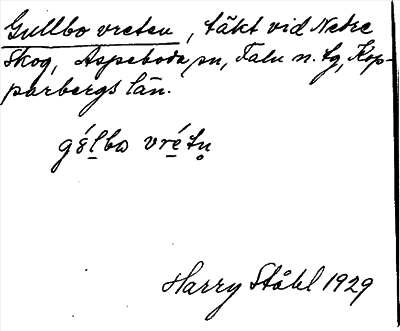 Gullbo vreten, täkt vid Nedre
Skog, Aspeboda sn, Falu n. tg, Kop-
parbergs län.
gólbo vrétn̥
Harry Ståhl 1929